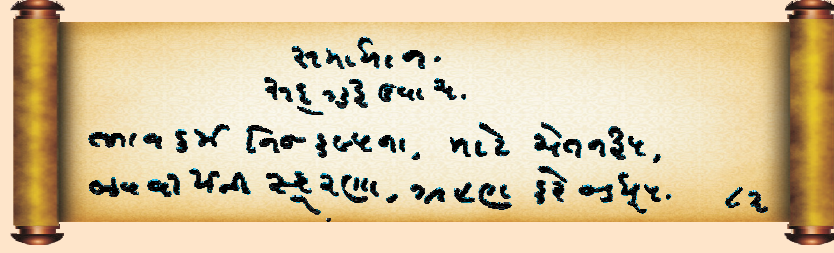 સમાધાન.
સદ્દગુરૂ ઉવાચ.
ભાવકર્મ નિજકલ્પના, માટે ચેતનરૂપ,
જીવવીર્યની સ્ફૂરણા, ગ્રહણ કરે જડધૂપ. ૮૨